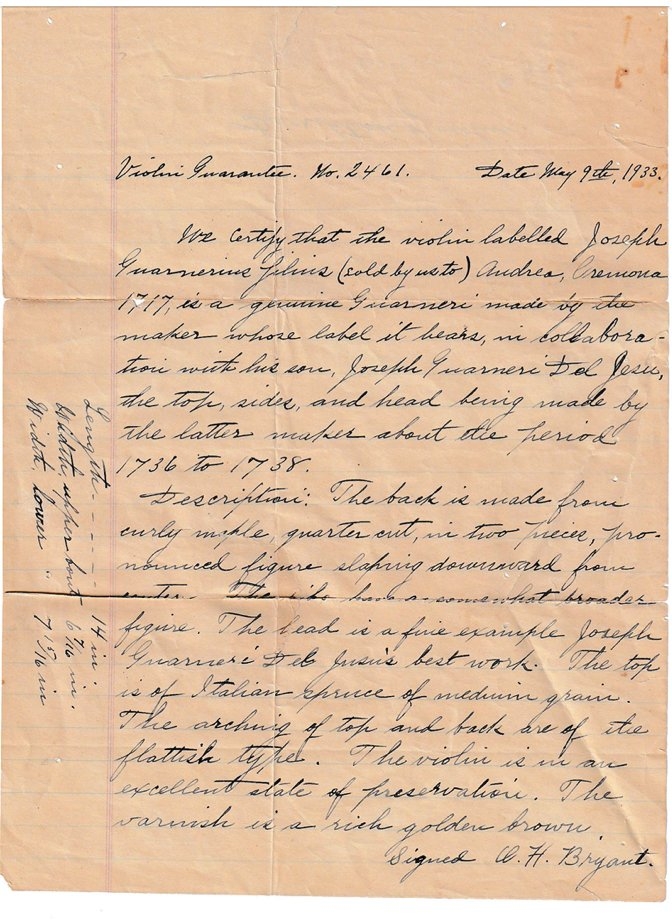 Violin Guarantee. No. 2461. Date May 9th, 1933.
We certify that the violin labelled Joseph
Guarnerius filius (sold by us to) Andrea, Cremona
1717, is a genuine Guarneri made by the
maker whose label it bears, in collabora-
tion with his son, Joseph Guarneri Del Jesu,
the top, sides, and head being made by
the latter maker about the period
1736 to 1738.
Description: The back is made from
curly maple, quarter cut, in two pieces, pro-
nounced figure sloping downward from
center. The ribs have a somewhat broader
figure. The head is a fine example Joseph
Guarneri Del Jesu's best work. The top
is of Italian spruce of medium grain.
The arching of top and back are of the
flattish type. The violin is in an
excellent state of preservation. The
varnish is a rich golden brown.
Signed O. H. Bryant.
Length - - - - - 14 in.
Width, upper bout 6 7/16 in.
Width, lower " 7 15/16 in